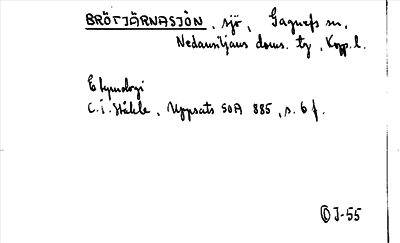 BRÖTJÄRNASJÖN, sjö, Gagnefs sn,
Nedansiljans doms. tg, Kopp. l.
Etymologi
C.I. Ståhle, Uppsats SOA 885, s. 6 f.
J-55